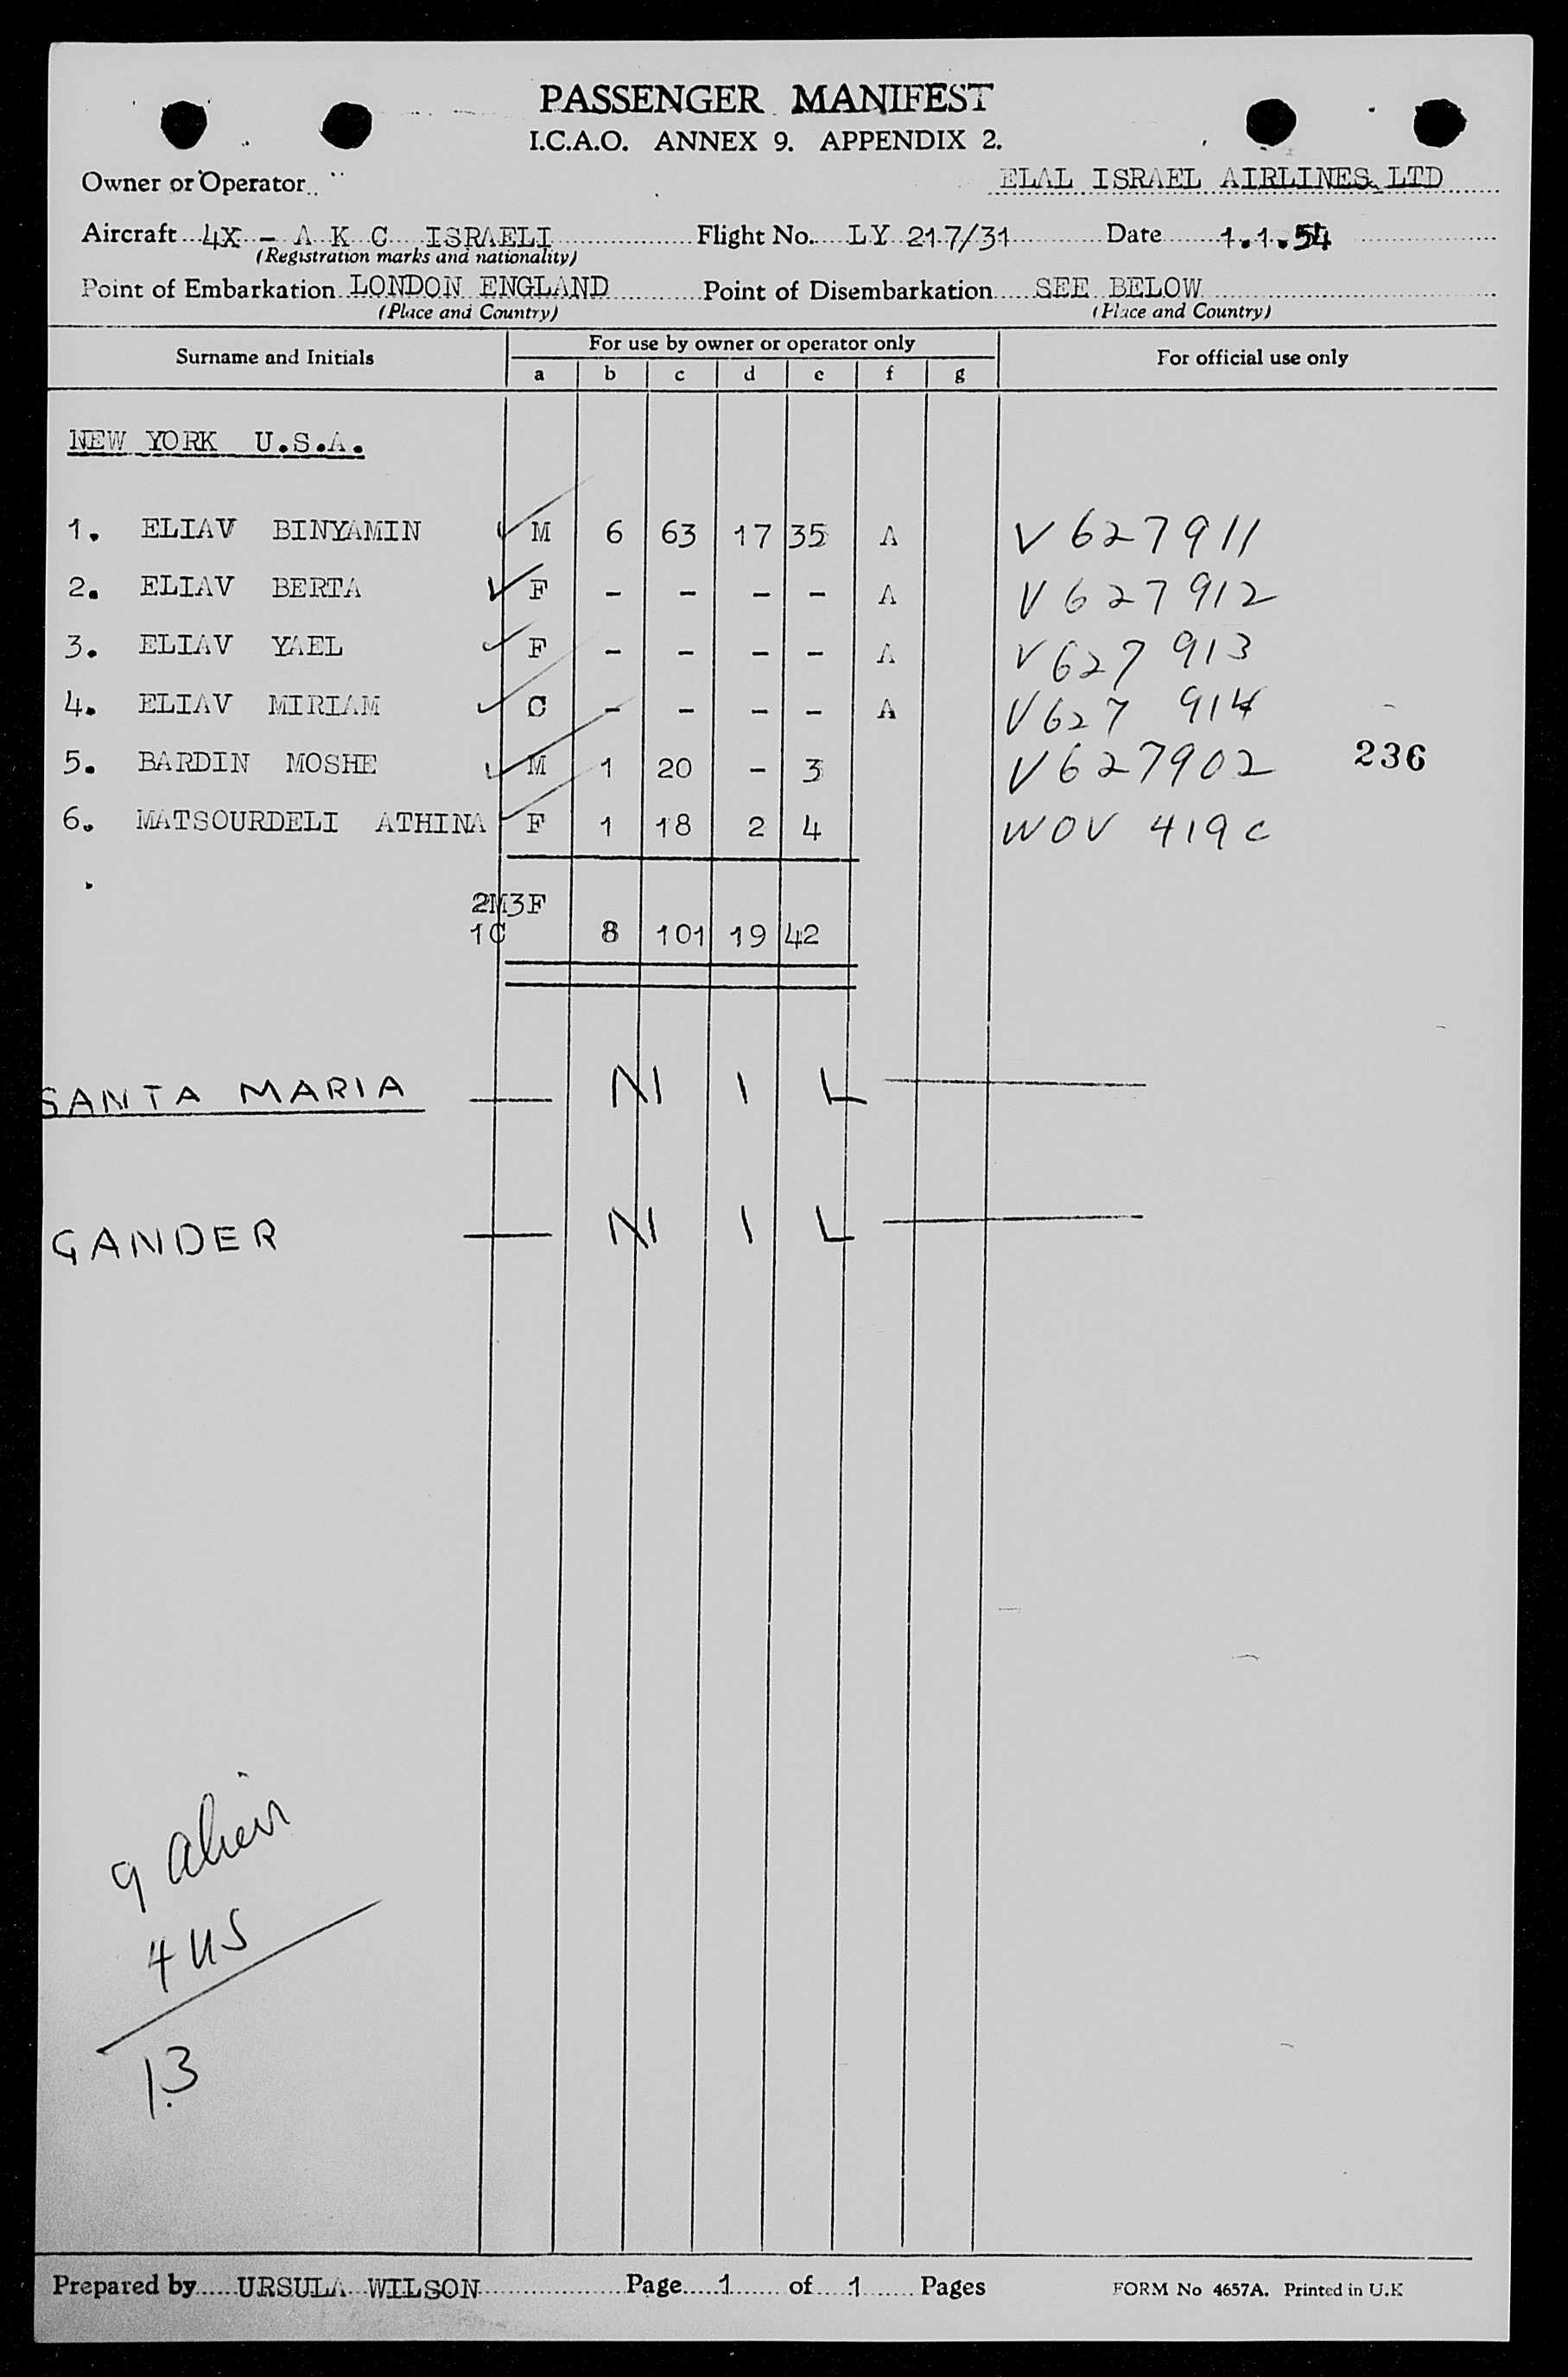 PASSENGER MANIFEST
I.C.A.O. ANNEX 9. APPENDIX 2.
Owner or Operator ELAL ISRAEL AIRLINES LTD
Aircraft 4X - A K C ISRAELI Flight No. LY 217/31 Date 1.1.54
(Registration marks and nationality)
Point of Embarkation LONDON ENGLAND Point of Disembarkation SEE BELOW
(Place and Country) (Place and Country)
Surname and Initials For use by owner or operator only For official use only
a b c d e f g
NEW YORK U.S.A.
1. ELIAV BINYAMIN M 6 63 17 35 A V627911
2. ELIAV BERTA F - - - - A V627912
3. ELIAV YAEL F - - - - A V627 913
4. ELIAV MIRIAM C - - - - A V627 914
5. BARDIN MOSHE M 1 20 - 3 V627902 236
6. MATSOURDELI ATHINA F 1 18 2 4 WOV 419 C
2M3F
1C 8 101 19 42
SANTA MARIA — N I L —
GANDER — N I L —
9 alien
4 US
13
Prepared by URSULA WILSON Page 1 of 1 Pages FORM No 4657A. Printed in U.K